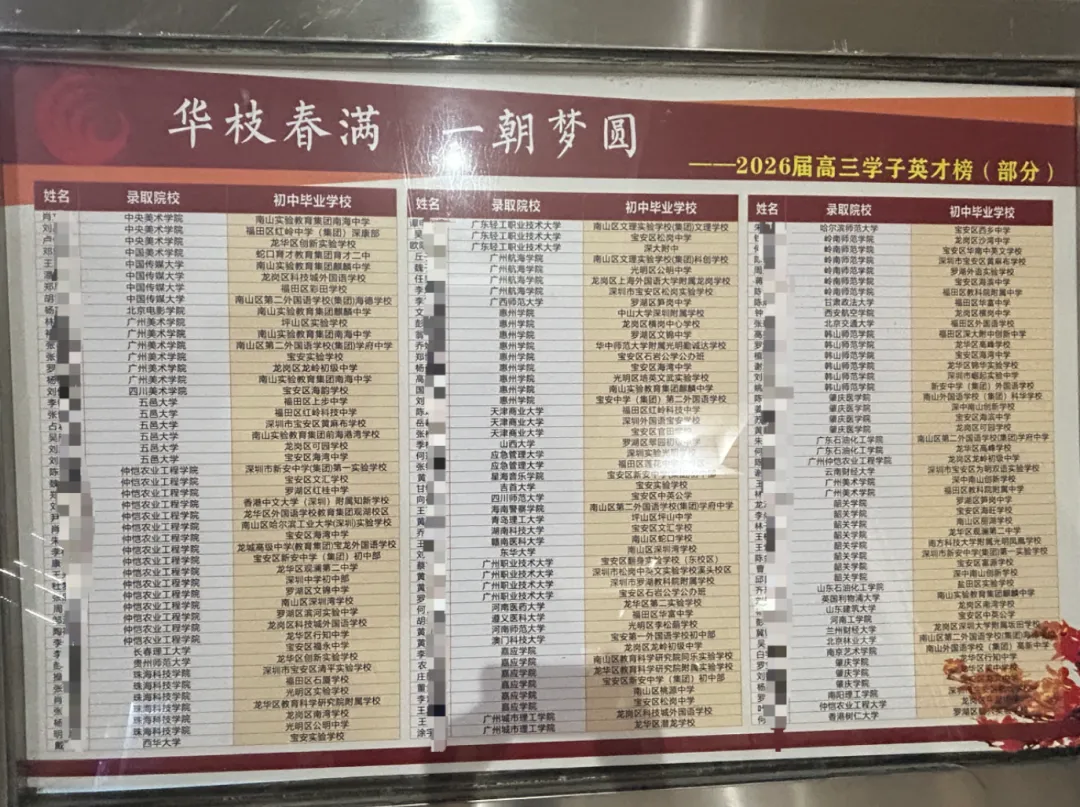 华枝春满 一朝梦圆
——2026届高三学子英才榜（部分）
姓名 录取院校 初中毕业学校
中央美术学院 南山实验教育集团南海中学
中央美术学院 福田区红岭中学（集团）深康部
中央美术学院 龙华区创新实验学校
中国美术学院 蛇口育才教育集团育才二中
中国传媒大学 南山实验教育集团麒麟中学
中国传媒大学 龙岗区科技城外国语学校
中国传媒大学 福田区彩田学校
中国传媒大学 南山区第二外国语学校(集团)海德学校
北京电影学院 南山实验教育集团麒麟中学
广州美术学院 坪山区实验学校
广州美术学院 南山实验教育集团南海中学
广州美术学院 南山区第二外国语学校(集团)学府中学
广州美术学院 宝安实验学校
广州美术学院 龙岗区龙岭初级中学
广州美术学院 南山实验教育集团南海中学
四川美术学院 宝安区海韵学校
五邑大学 福田区上步中学
五邑大学 福田区红岭科技中学
五邑大学 深圳市宝安区黄麻布学校
五邑大学 南山实验教育集团前海港湾学校
五邑大学 龙岗区可园学校
五邑大学 宝安区海湾中学
仲恺农业工程学院 深圳市新安中学(集团)第一实验学校
仲恺农业工程学院 宝安区文汇学校
仲恺农业工程学院 罗湖区红桂中学
仲恺农业工程学院 香港中文大学（深圳）附属知新学校
仲恺农业工程学院 龙华区外国语学校教育集团观湖校区
仲恺农业工程学院 南山区哈尔滨工业大学(深圳)实验学校
仲恺农业工程学院 宝安区海湾中学
仲恺农业工程学院 龙城高级中学(教育集团)宝龙外国语学校
仲恺农业工程学院 宝安区新安中学（集团）初中部
仲恺农业工程学院 龙华区观澜第二中学
仲恺农业工程学院 深圳中学初中部
仲恺农业工程学院 罗湖区文锦中学
仲恺农业工程学院 南山区深圳湾学校
仲恺农业工程学院 罗湖区滨河实验中学
仲恺农业工程学院 龙岗区科技城外国语学校
仲恺农业工程学院 龙华区行知中学
长春理工大学 宝安区福永中学
贵州师范大学 龙华区创新实验学校
珠海科技学院 深圳市宝安区清平实验学校
珠海科技学院 福田区石厦学校
珠海科技学院 光明区实验学校
珠海科技学院 龙华区教育科学研究院附属学校
珠海科技学院 龙岗区南湾学校
珠海科技学院 光明区公明中学
西华大学 宝安实验学校
姓名 录取院校 初中毕业学校
广东轻工职业技术大学 南山区文理实验学校(集团)文理学校
广东轻工职业技术大学 宝安区松岗中学
广东轻工职业技术大学 深大附中
广州航海学院 南山区文理实验学校(集团)科创学校
广州航海学院 光明区公明中学
广州航海学院 龙岗区上海外国语大学附属龙岗学校
广州航海学院 深圳市宝安区松岗实验学校
广西师范大学 罗湖区笋岗中学
惠州学院 中山大学深圳附属学校
惠州学院 龙岗区横岗中心学校
惠州学院 罗湖区文锦中学
惠州学院 华中师范大学附属光明勤诚达学校
惠州学院 宝安区石岩公学公办班
惠州学院 宝安区海湾中学
惠州学院 光明区培英文武实验学校
惠州学院 南山实验教育集团麒麟中学
惠州学院 宝安中学（集团）第二外国语学校
天津商业大学 福田区红岭科技中学
天津商业大学 深圳外国语宝安学校
天津商业大学 宝安区官田
山西大学 罗湖区翠园初级中学
应急管理大学 深圳实验学校光明部
应急管理大学 福田区莲花中学
星海音乐学院 新安中学（集团）第二
吉首大学 宝安实验学校
四川师范大学 宝安区中英公学
海南警察学院 南山区第二外国语学校(集团)学府中学
青岛理工大学 坪山区坪山中学
湖南科技大学 宝安区文汇学校
赣南医科大学 南山区蛇口学校
东华大学 南山区深圳湾学校
广州职业技术大学 宝安区翻身实验学校（东校区）
广州职业技术大学 深圳市松岗中英文实验学校溪头校区
广州职业技术大学 深圳市罗湖教科院附属学校
广州职业技术大学 宝安区石岩公学公办班
河南医药大学 龙华区第二实验学校
遵义医科大学 福田区华富中学
河南师范大学 光明区李松蓢学校
澳门科技大学 宝安第一外国语学校初中部
嘉应学院 龙岗区龙岭初级中学
嘉应学院 南山区教育科学研究院同乐实验学校
嘉应学院 龙华区教育科学研究院附属实验学校
嘉应学院 宝安区新安中学（集团）初中部
嘉应学院 南山区桃源中学
嘉应学院 宝安区松岗中学
广州城市理工学院 龙岗区科技城外国语学校
广州城市理工学院 龙华区潜龙学校
姓名 录取院校 初中毕业学校
哈尔滨师范大学 宝安区西乡中学
岭南师范学院 龙岗区沙湾中学
岭南师范学院 宝安区华南中英文学校
岭南师范学院 深圳市宝安区黄麻布学校
岭南师范学院 罗湖外语实验学校
岭南师范学院 宝安区海滨中学
岭南师范学院 福田区教科院附属中学
甘肃政法大学 福田区华富中学
西安航空学院 龙岗区横岗中学
北京交通大学 福田区外国语学校
韩山师范学院 福田区深大附中创新中学
韩山师范学院 龙华区高峰学校
韩山师范学院 宝安区海湾中学
韩山师范学院 龙华区锦华实验学校
韩山师范学院 深圳市崛起实验中学
韩山师范学院 新安中学（集团）外国语学校
肇庆医学院 南山外国语学校（集团）科华学校
肇庆医学院 深中南山创新学校
肇庆医学院 宝安区海滨中学
肇庆医学院 龙岗区可园学校
广东石油化工学院 南山区第二外国语学校(集团)学府中学
广东石油化工学院 龙华区高峰学校
广州仲恺农业工程学院 龙岗区龙岭初级中学
云南财经大学 深圳市宝安区为明双语实验学校
广州美术学院 深中南山创新学校
广州美术学院 福田区教科院附属中学
韶关学院 罗湖区笋岗中学
韶关学院 宝安区海旺学校
韶关学院 南山区前湖学校
韶关学院 龙华区观澜第二中学
韶关学院 南方科技大学附属光明凤凰学校
韶关学院 深圳市新安中学(集团)第一实验学校
韶关学院 宝安区富源学校
韶关学院 深中南山创新学校
山东石油化工学院 盐田区实验学校
英国利物浦大学 南山实验教育集团麒麟中学
山东建筑大学 龙岗区南湾学校
河南工学院 宝安区中英公学
兰州财经大学 龙岗区深圳大学附属坂田学校
北京林业大学 南山区第二外国语学校(集团)海
南京艺术学院 宝安中学（集团）
肇庆学院 龙华区行知中学
肇庆学院
肇庆学院
南阳理工学院
仲恺农业工程大学
香港树仁大学